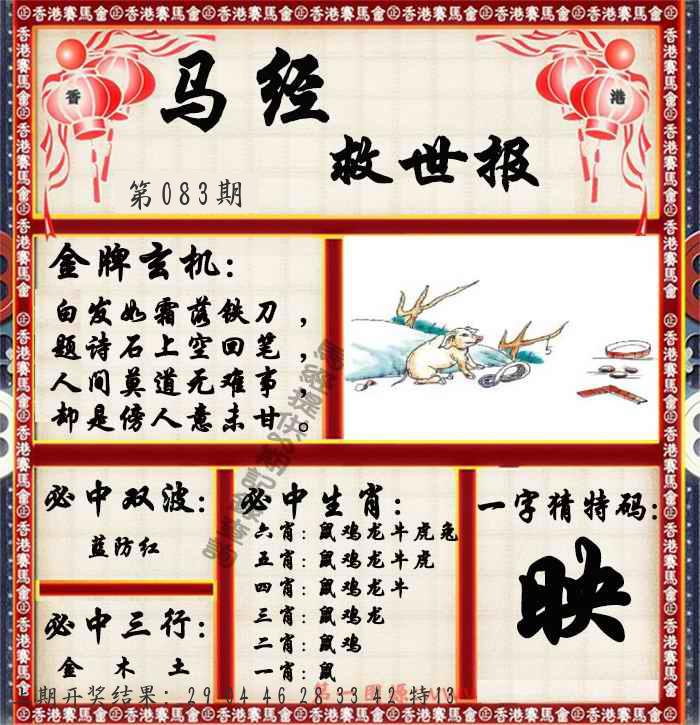 香 港
马经
救世报
第083期
金牌玄机：
白发如霜落铁刀，
题诗石上空回笔，
人间莫道死难事，
却是傍人意未甘。
必中双波：
蓝防红
必中三行：
金 木 土
必中生肖：
六肖：鼠鸡龙牛虎兔
五肖：鼠鸡龙牛虎
四肖：鼠鸡龙牛
三肖：鼠鸡龙
二肖：鼠鸡
一肖：鼠
一字猜特码：
映
期开奖结果：29 04 46 28 33 42 特13
香港赛馬會